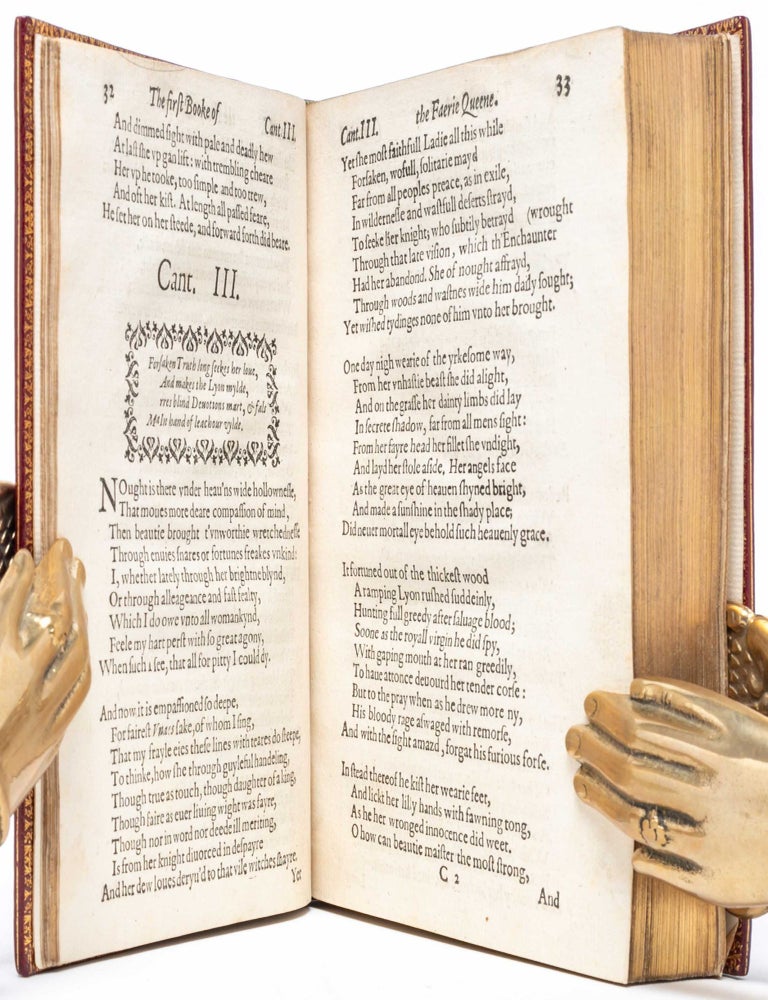 32 The first Booke of Cant. III.
And dimmed sight with pale and deadly hew
At last she vp gan lift: with trembling cheare
Her vp he tooke, too simple and too trew,
And oft her kist. At length all passed feare,
He set her on her steede, and forward forth did beare.
Cant. III.
Forsaken Truth long seekes her loue,
And makes the Lyon mylde,
rres blind Deuotions mart, & fals
In hand of leachour vylde.
NOught is there vnder heau'ns wide hollownesse,
That moues more deare compassion of mind,
Then beautie brought t'vnworthie wretchednesse
Through enuies snares or fortunes freakes vnkind:
I, whether lately through her brightne blynd,
Or through alleageance and fast fealty,
Which I do owe vnto all womankynd,
Feele my hart perst with so great agony,
When such I see, that all for pitty I could dy.
And now it is empassioned so deepe,
For fairest Vnaes sake, of whom I sing,
That my frayle eies these lines with teares do steepe,
To thinke, how she through guyleful handeling,
Though true as touch, though daughter of a king,
Though faire as euer liuing wight was fayre,
Though nor in word nor deede ill meriting,
Is from her knight diuorced in despayre
And her dew loues deryu'd to that vile witches shayre.
Yet
Cant. III. the Faerie Queene. 33
Yet she most faithfull Ladie all this while
Forsaken, wofull, solitarie mayd
Far from all peoples preace, as in exile,
In wildernesse and wastfull deserts strayd,
To seeke her knight; who subtily betrayd (wrought
Through that late vision, which th'Enchaunter
Had her abandond. She of nought affrayd,
Through woods and wastnes wide him daily sought;
Yet wished tydinges none of him vnto her brought.
One day nigh wearie of the yrkesome way,
From her vnhastie beast she did alight,
And on the grasse her dainty limbs did lay
In secrete shadow, far from all mens sight:
From her fayre head her fillet she vndight,
And layd her stole aside, Her angels face
As the great eye of heauen shyned bright,
And made a sunshine in the shady place;
Did neuer mortall eye behold such heauenly grace.
It fortuned out of the thickest wood
A ramping Lyon rushed suddeinly,
Hunting full greedy after saluage blood;
Soone as the royall virgin he did spy,
With gaping mouth at her ran greedily,
To haue attonce deuourd her tender corse:
But to the pray when as he drew more ny,
His bloody rage aswaged with remorse,
And with the sight amazd, forgat his furious forse.
In stead thereof he kist her wearie feet,
And lickt her lilly hands with fawning tong,
As he her wronged innocence did weet.
O how can beautie maister the most strong,
C 2
And